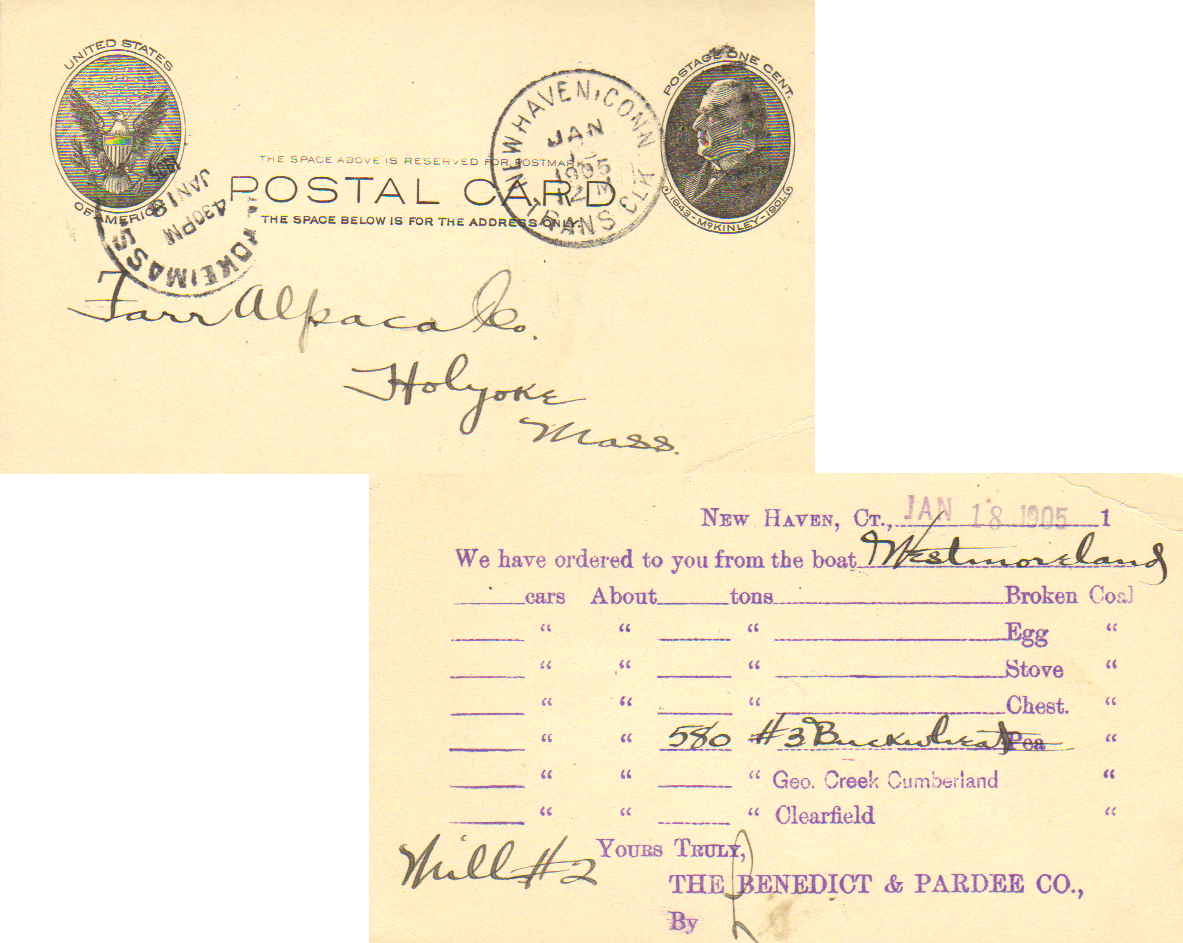 UNITED STATES
OF AMERICA
POSTAGE ONE CENT.
1843-McKINLEY-1901.
NEW HAVEN, CONN
JAN
1905
12 M
TRANS CLK
THE SPACE ABOVE IS RESERVED FOR POSTMARK
POSTAL CARD
THE SPACE BELOW IS FOR THE ADDRESS ONLY.
MASS
JAN 18
430PM
1905
Farr Alpaca Co.
Holyoke
Mass.
NEW HAVEN, CT., JAN 18 1905 1
We have ordered to you from the boat Westmoreland
cars About tons Broken Coal
" " " Egg "
" " " Stove "
" " " Chest. "
" " 580 #3 Buckwheat Pea "
" " " Geo. Creek Cumberland "
" " " Clearfield "
Mill #2 YOURS TRULY,
THE BENEDICT & PARDEE CO.,
By